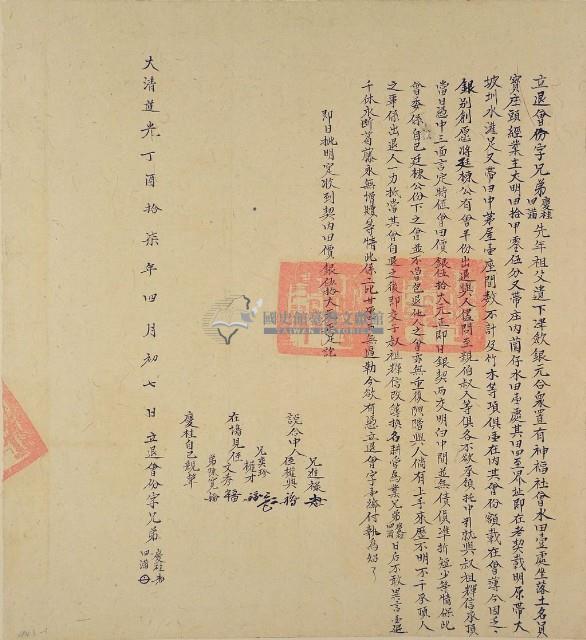 立退會份字兄弟慶桂四滔先年祖父遺下津飲銀元合眾置有神福社會水田壹處坐落土名員
寶庄頭經業主大明田拾甲零伍分又帶庄內菌仔水田壹處其田四至界址即在老契載明原帶大
坡圳水灌足又帶田中茅屋壹座間數不計及竹木等項俱壹在內其會份額載在會簿今因乏
銀別創愿將廷棟公有會半份出退與人儘問至親伯叔人等俱各不欲承領托中引就與叔祖輝信承頂
當日憑中三面言定時值會田價銀伍拾大元正即日銀契兩交明白中間並無債貨準折短少等情保此
會委係自己廷棟公份下之會並不曾包退他人之會亦無重復阿階與人倘有上手來歷不明不干承頂人
之事係出退人一力抵當其會自退之後即交于叔祖輝信改簿換名耕管為業兄弟慶桂四滔日后不敢異言壹退
千休永斷葛藤永無增贖等情此係二比甘愿兩無逼勒今欲有憑立退會字壹紙付執為炤
即日批明寔收到契內田價銀伍拾大元正足訖
兄廷禄
說合中人 侄權興
兄英珍
在場見侄文秀
弟陳寬
慶桂自己親筆
大清道光丁酉拾柒年四月初七日立退會份字兄弟慶桂四滔
國史館臺灣文獻館
TAIWAN HISTORICA